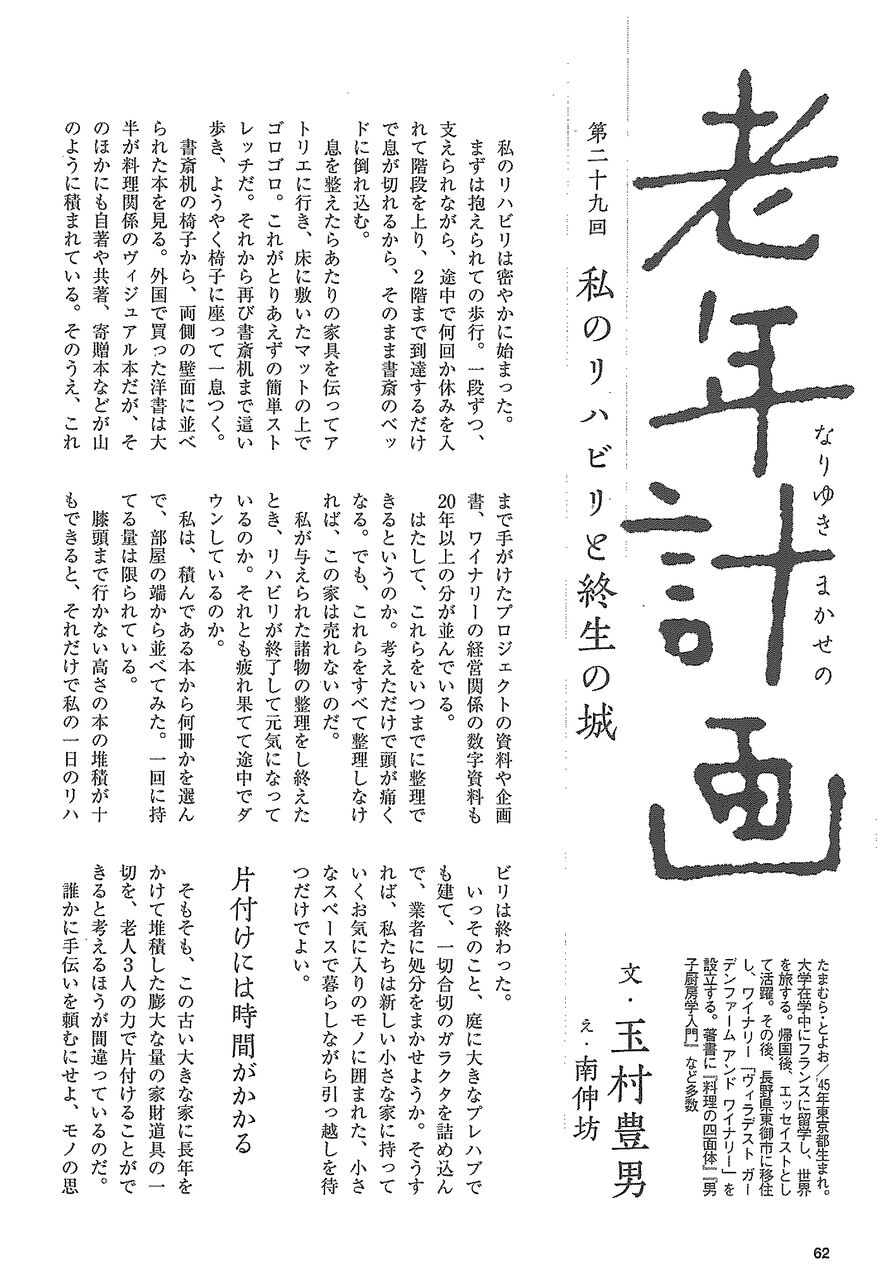 なりゆき まかせの
老年計画
第二十九回 私のリハビリと終生の城
文・玉村豊男
え・南伸坊
たまむら・とよお／'45年東京都生まれ。
大学在学中にフランスに留学し、世界
を旅する。帰国後、エッセイストとし
て活躍。その後、長野県東御市に移住
し、ワイナリー「ヴィラデスト ガー
デンファーム アンド ワイナリー」を
設立する。著書に『料理の四面体』『男
子厨房学入門』など多数
私のリハビリは密やかに始まった。
まずは抱えられての歩行。一段ずつ、
支えられながら、途中で何回か休みを入
れて階段を上り、2階まで到達するだけ
で息が切れるから、そのまま書斎のベッ
ドに倒れ込む。
息を整えたらあたりの家具を伝ってア
トリエに行き、床に敷いたマットの上で
ゴロゴロ。これがとりあえずの簡単スト
レッチだ。それから再び書斎机まで這い
歩き、ようやく椅子に座って一息つく。
書斎机の椅子から、両側の壁面に並べ
られた本を見る。外国で買った洋書は大
半が料理関係のヴィジュアル本だが、そ
のほかにも自著や共著、寄贈本などが山
のように積まれている。そのうえ、これ
まで手がけたプロジェクトの資料や企画
書、ワイナリーの経営関係の数字資料も
20年以上の分が並んでいる。
はたして、これらをいつまでに整理で
きるというのか。考えただけで頭が痛く
なる。でも、これらをすべて整理しなけ
れば、この家は売れないのだ。
私が与えられた諸物の整理をし終えた
とき、リハビリが終了して元気になって
いるのか。それとも疲れ果てて途中でダ
ウンしているのか。
私は、積んである本から何冊かを選ん
で、部屋の端から並べてみた。一回に持
てる量は限られている。
膝頭まで行かない高さの本の堆積が十
もできると、それだけで私の一日のリハ
ビリは終わった。
いっそのこと、庭に大きなプレハブで
も建て、一切合切のガラクタを詰め込ん
で、業者に処分をまかせようか。そうす
れば、私たちは新しい小さな家に持って
いくお気に入りのモノに囲まれた、小さ
なスペースで暮らしながら引っ越しを待
つだけでよい。
片付けには時間がかかる
そもそも、この古い大きな家に長年を
かけて堆積した膨大な量の家財道具の一
切を、老人3人の力で片付けることがで
きると考えるほうが間違っているのだ。
誰かに手伝いを頼むにせよ、モノの思
62